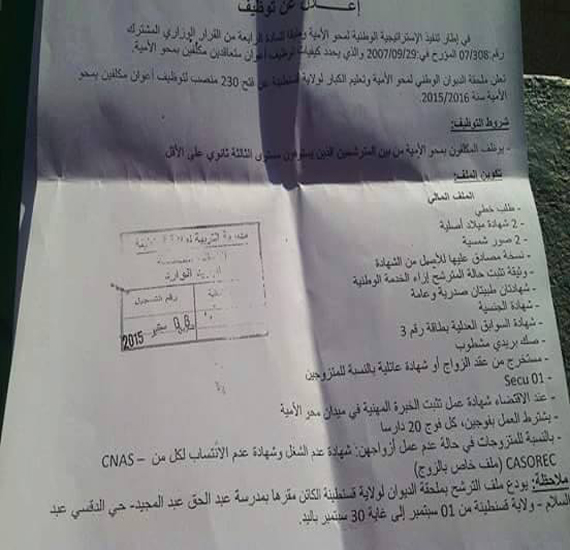 إعلان عن توظيف
في إطار تنفيذ الإستراتيجية الوطنية لمحو الأمية وطبقا للمادة الرابعة من القرار الوزاري المشترك
رقم:07/308 المؤرخ في:2007/09/29 والذي يحدد كيفيات توظيف أعوان متعاقدين مكلفين بمحو الأمية.
تعلن ملحقة الديوان الوطني لمحو الأمية وتعليم الكبار لولاية قسنطينة عن فتح 230 منصب لتوظيف أعوان مكلفين بمحو
الأمية سنة 2015/2016.
شروط التوظيف:
- يوظف المكلفون بمحو الأمية من بين المترشحين الذين يستوفون مستوى الثالثة ثانوي على الأقل
تكوين الملف:
الملف المالي
- طلب خطي
- 2 شهادة ميلاد أصلية
- 2 صور شمسية
- نسخة مصادق عليها للأصيل من الشهادة
- وثيقة تثبت حالة المترشح إزاء الخدمة الوطنية
- شهادتان طبيتان صدرية وعامة
- شهادة الجنسية
- شهادة السوابق العدلية بطاقة رقم 3
- صك بريدي مشطوب
- مستخرج من عقد الزواج أو شهادة عائلية بالنسبة للمتزوجين
- Secu 01
- عند الاقتضاء شهادة عمل تثبت الخبرة المهنية في ميدان محو الأمية
- يشترط العمل بفوجين، كل فوج 20 دارسا
- بالنسبة للمتزوجات في حالة عدم عمل أزواجهن: شهادة عدم الشغل وشهادة عدم الانتساب لكل من CNAS –
CASOREC (ملف خاص بالزوج)
ملاحظة: يودع ملف الترشح بملحقة الديوان لولاية قسنطينة الكائن مقرها بمدرسة عبد الحق عبد المجيد- حي الدقسي عبد
السلام – ولاية قسنطينة من 01 سبتمبر إلى غاية 30 سبتمبر باليد.
التربية
الواردة
رقم التسجيل
06 سبتمبر 2015